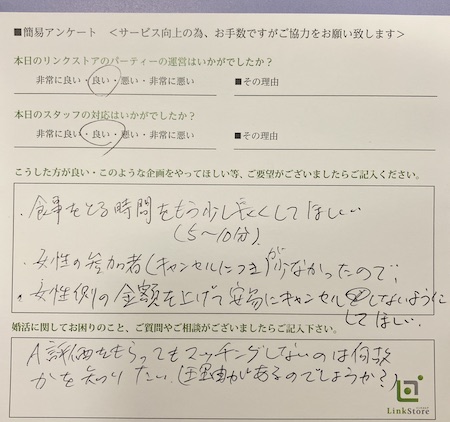 ■簡易アンケート ＜サービス向上の為、お手数ですがご協力をお願い致します＞
本日のリンクストアのパーティーの運営はいかがでしたか？
非常に良い・良い・悪い・非常に悪い ■その理由
本日のスタッフの対応はいかがでしたか？
非常に良い・良い・悪い・非常に悪い ■その理由
こうした方が良い・このような企画をやってほしい等、ご要望がございましたらご記入ください。
・食事をとる時間をもう少し長くしてほしい
(5〜10分)
・女性の参加者(キャンセルにつき)が少なかったので、
・女性側の金額を上げて安易にキャンセルしないように
してほしい
婚活に関してお困りのこと、ご質問やご相談がございましたらご記入下さい。
A評価をもらってもマッチングしないのは何故
かを知りたい。(理由があるのでしょうか？)
LinkStore